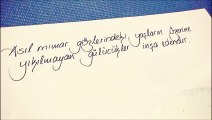 Asıl mimar gözlerindeki yaşların üzerine
yıkılmayan gülücükler inşa edendir.